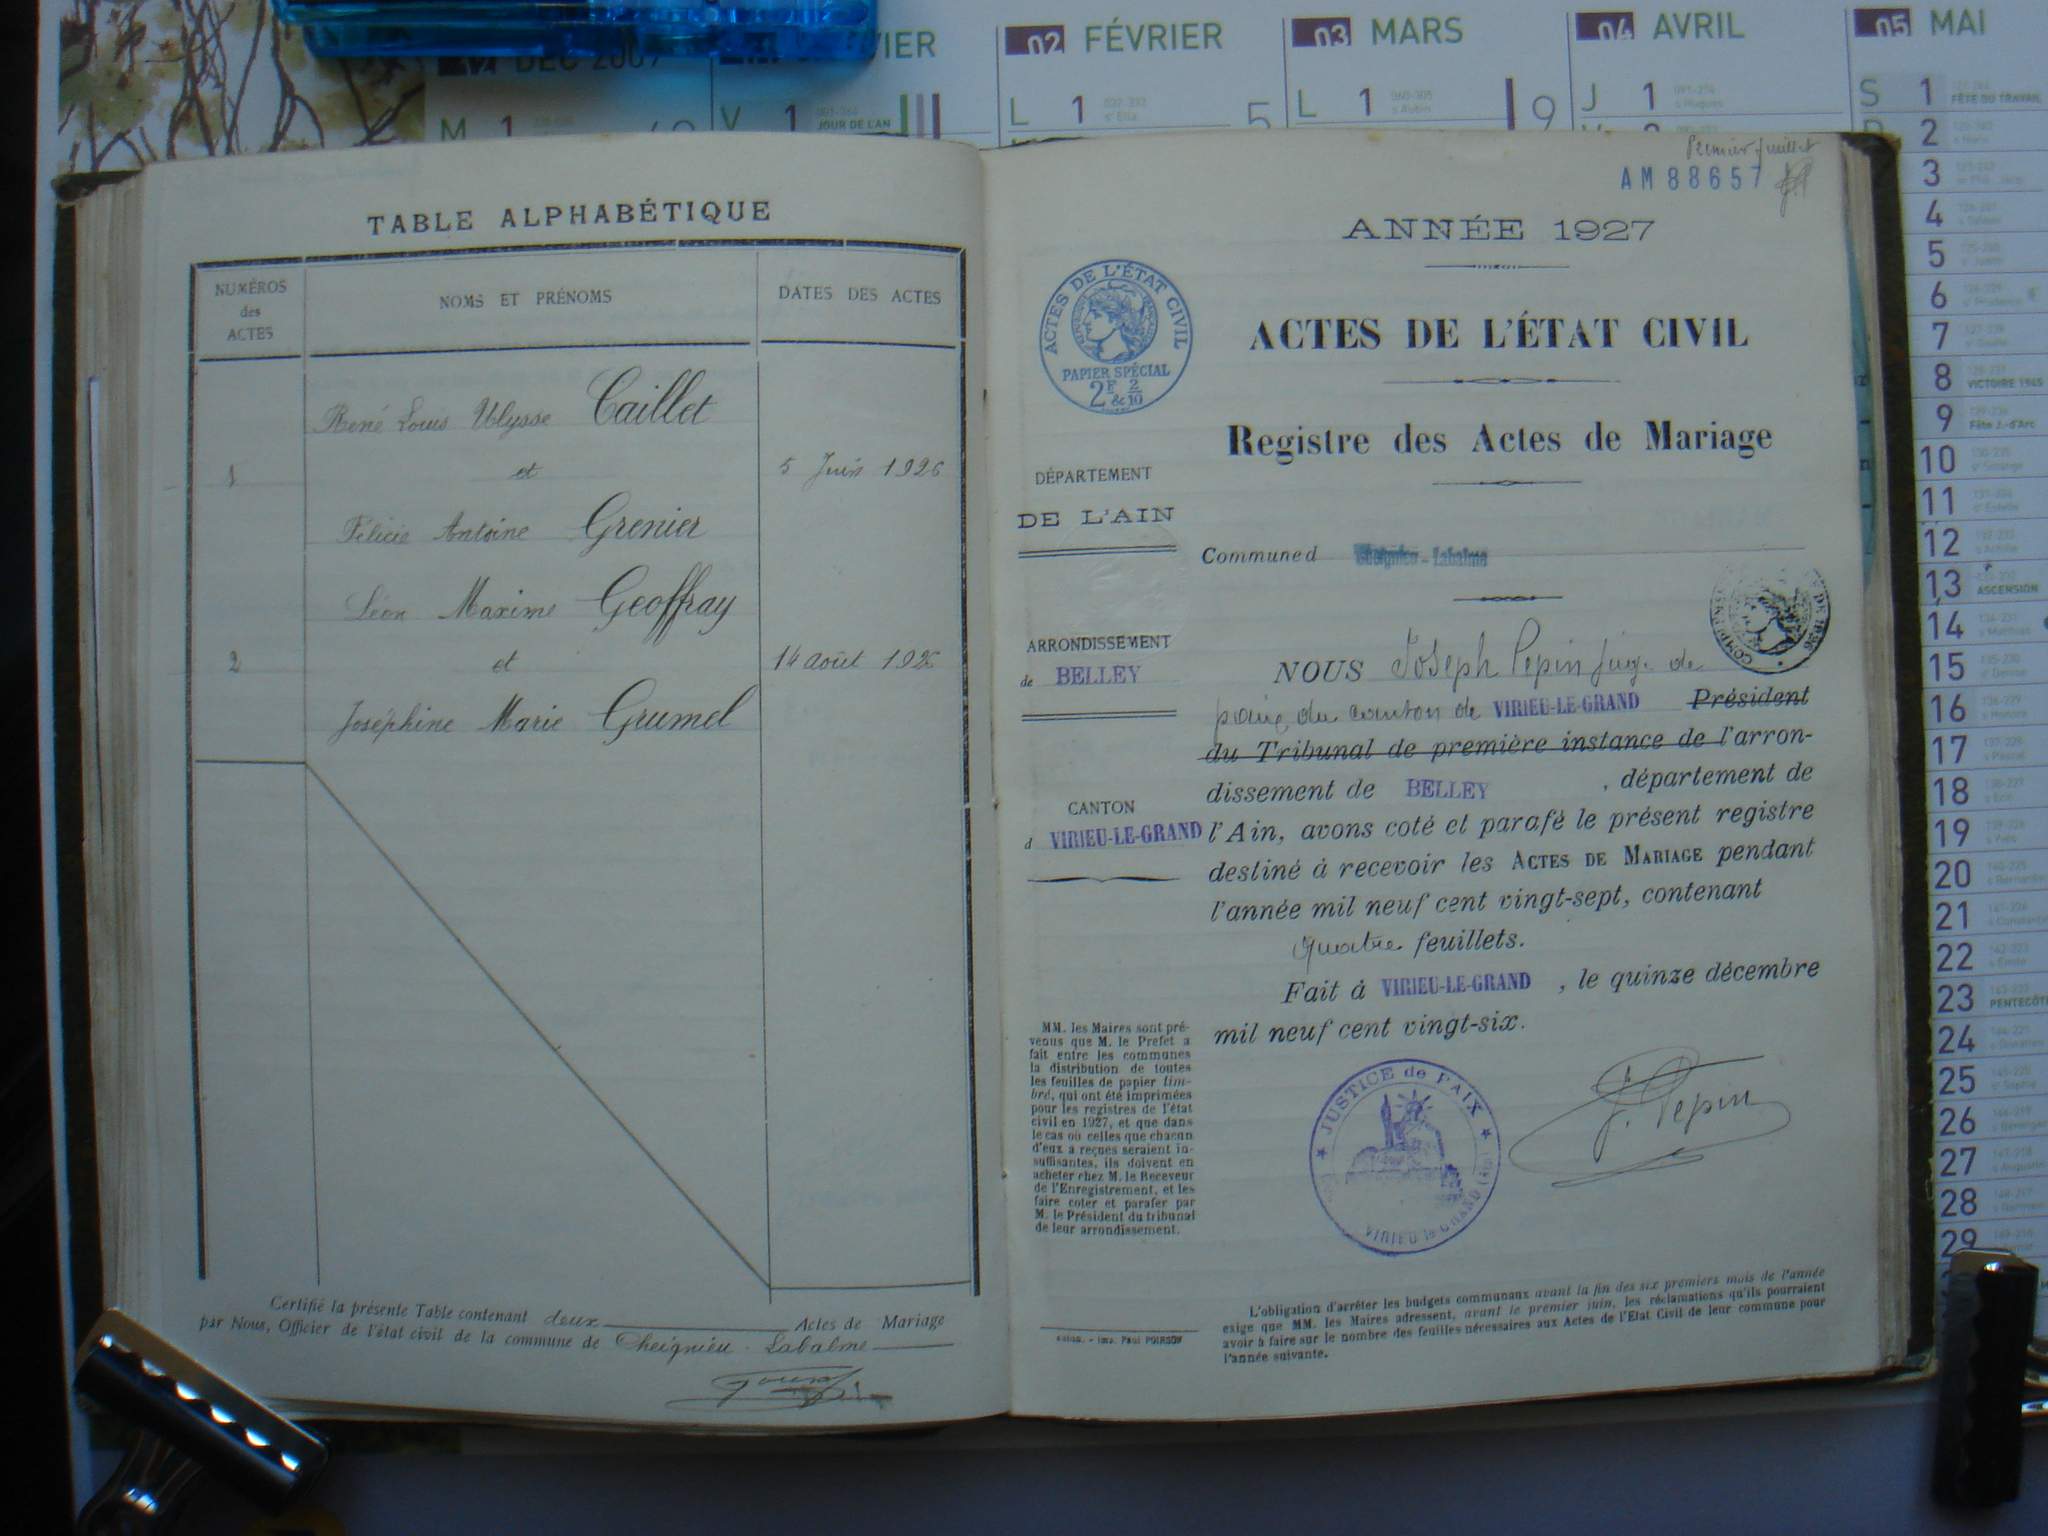 DEC 2009
VIER
02 FÉVRIER
03 MARS
04 AVRIL
05 MAI
M 1
V 1 JOUR DE L'AN
L 1 5
L 1 9
J 1
S 1 FÊTE DU TRAVAIL
2
3
4
5
6
7
8 VICTOIRE 1945
9 Fête J.-d'Arc
10
11
12
13 ASCENSION
14
15
16
17
18
19
20
21
22
23 PENTECÔTE
24
25
26
27
28
29
TABLE ALPHABÉTIQUE
NUMÉROS des ACTES
NOMS ET PRÉNOMS
DATES DES ACTES
René Louis Ulysse Caillet
1 et 5 Juin 1926
Félicie Antoine Grenier
Léon Maxime Geoffray
2 et 14 août 1926
Joséphine Marie Grumel
Certifié la présente Table contenant deux Actes de Mariage
par Nous, Officier de l'état civil de la commune de Cheignieu-Labalme
Premier feuillet
AM 88657
ANNÉE 1927
ACTES DE L'ÉTAT CIVIL
PAPIER SPÉCIAL
2F & 2/10
ACTES DE L'ÉTAT CIVIL
Registre des Actes de Mariage
DÉPARTEMENT
DE L'AIN
Commune d Cheignieu-Labalme
ARRONDISSEMENT
de BELLEY
CANTON
d VIRIEU-LE-GRAND
NOUS Joseph Pepin juge de
paix du canton de VIRIEU-LE-GRAND Président
du Tribunal de première instance de l'arron-
dissement de BELLEY , département de
l'Ain, avons coté et parafé le présent registre
destiné à recevoir les ACTES DE MARIAGE pendant
l'année mil neuf cent vingt-sept, contenant
quatre feuillets.
Fait à VIRIEU-LE-GRAND , le quinze décembre
mil neuf cent vingt-six.
J. Pepin
JUSTICE de PAIX
VIRIEU le GRAND
MM. les Maires sont pré-
venus que M. le Prefet a
fait entre les communes
la distribution de toutes
les feuilles de papier tim-
bré, qui ont été imprimées
pour les registres de l'état
civil en 1927, et que dans
le cas où celles que chacun
d'eux a reçues seraient in-
suffisantes, ils doivent en
acheter chez M. le Receveur
de l'Enregistrement, et les
faire coter et parafer par
M. le Président du tribunal
de leur arrondissement.
Imp. Paul POIRSON
L'obligation d'arrêter les budgets communaux avant la fin des six premiers mois de l'année
exige que MM. les Maires adressent, avant le premier juin, les réclamations qu'ils pourraient
avoir à faire sur le nombre des feuilles nécessaires aux Actes de l'Etat Civil de leur commune pour
l'année suivante.